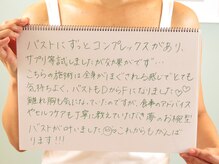 バストにずっとコンプレックスがあり、
サプリ等試しましたが効果がでず…
こちらの施術は全身がほぐされる感じでとても
気持ちよく、バストもDからFになりました♡♡
離れ胸も気になっていたのですが、食事のアドバイス
やセルフケアも丁寧に教えていただき夢のお椀型
バストが叶いました これからもがんば
ります!!!